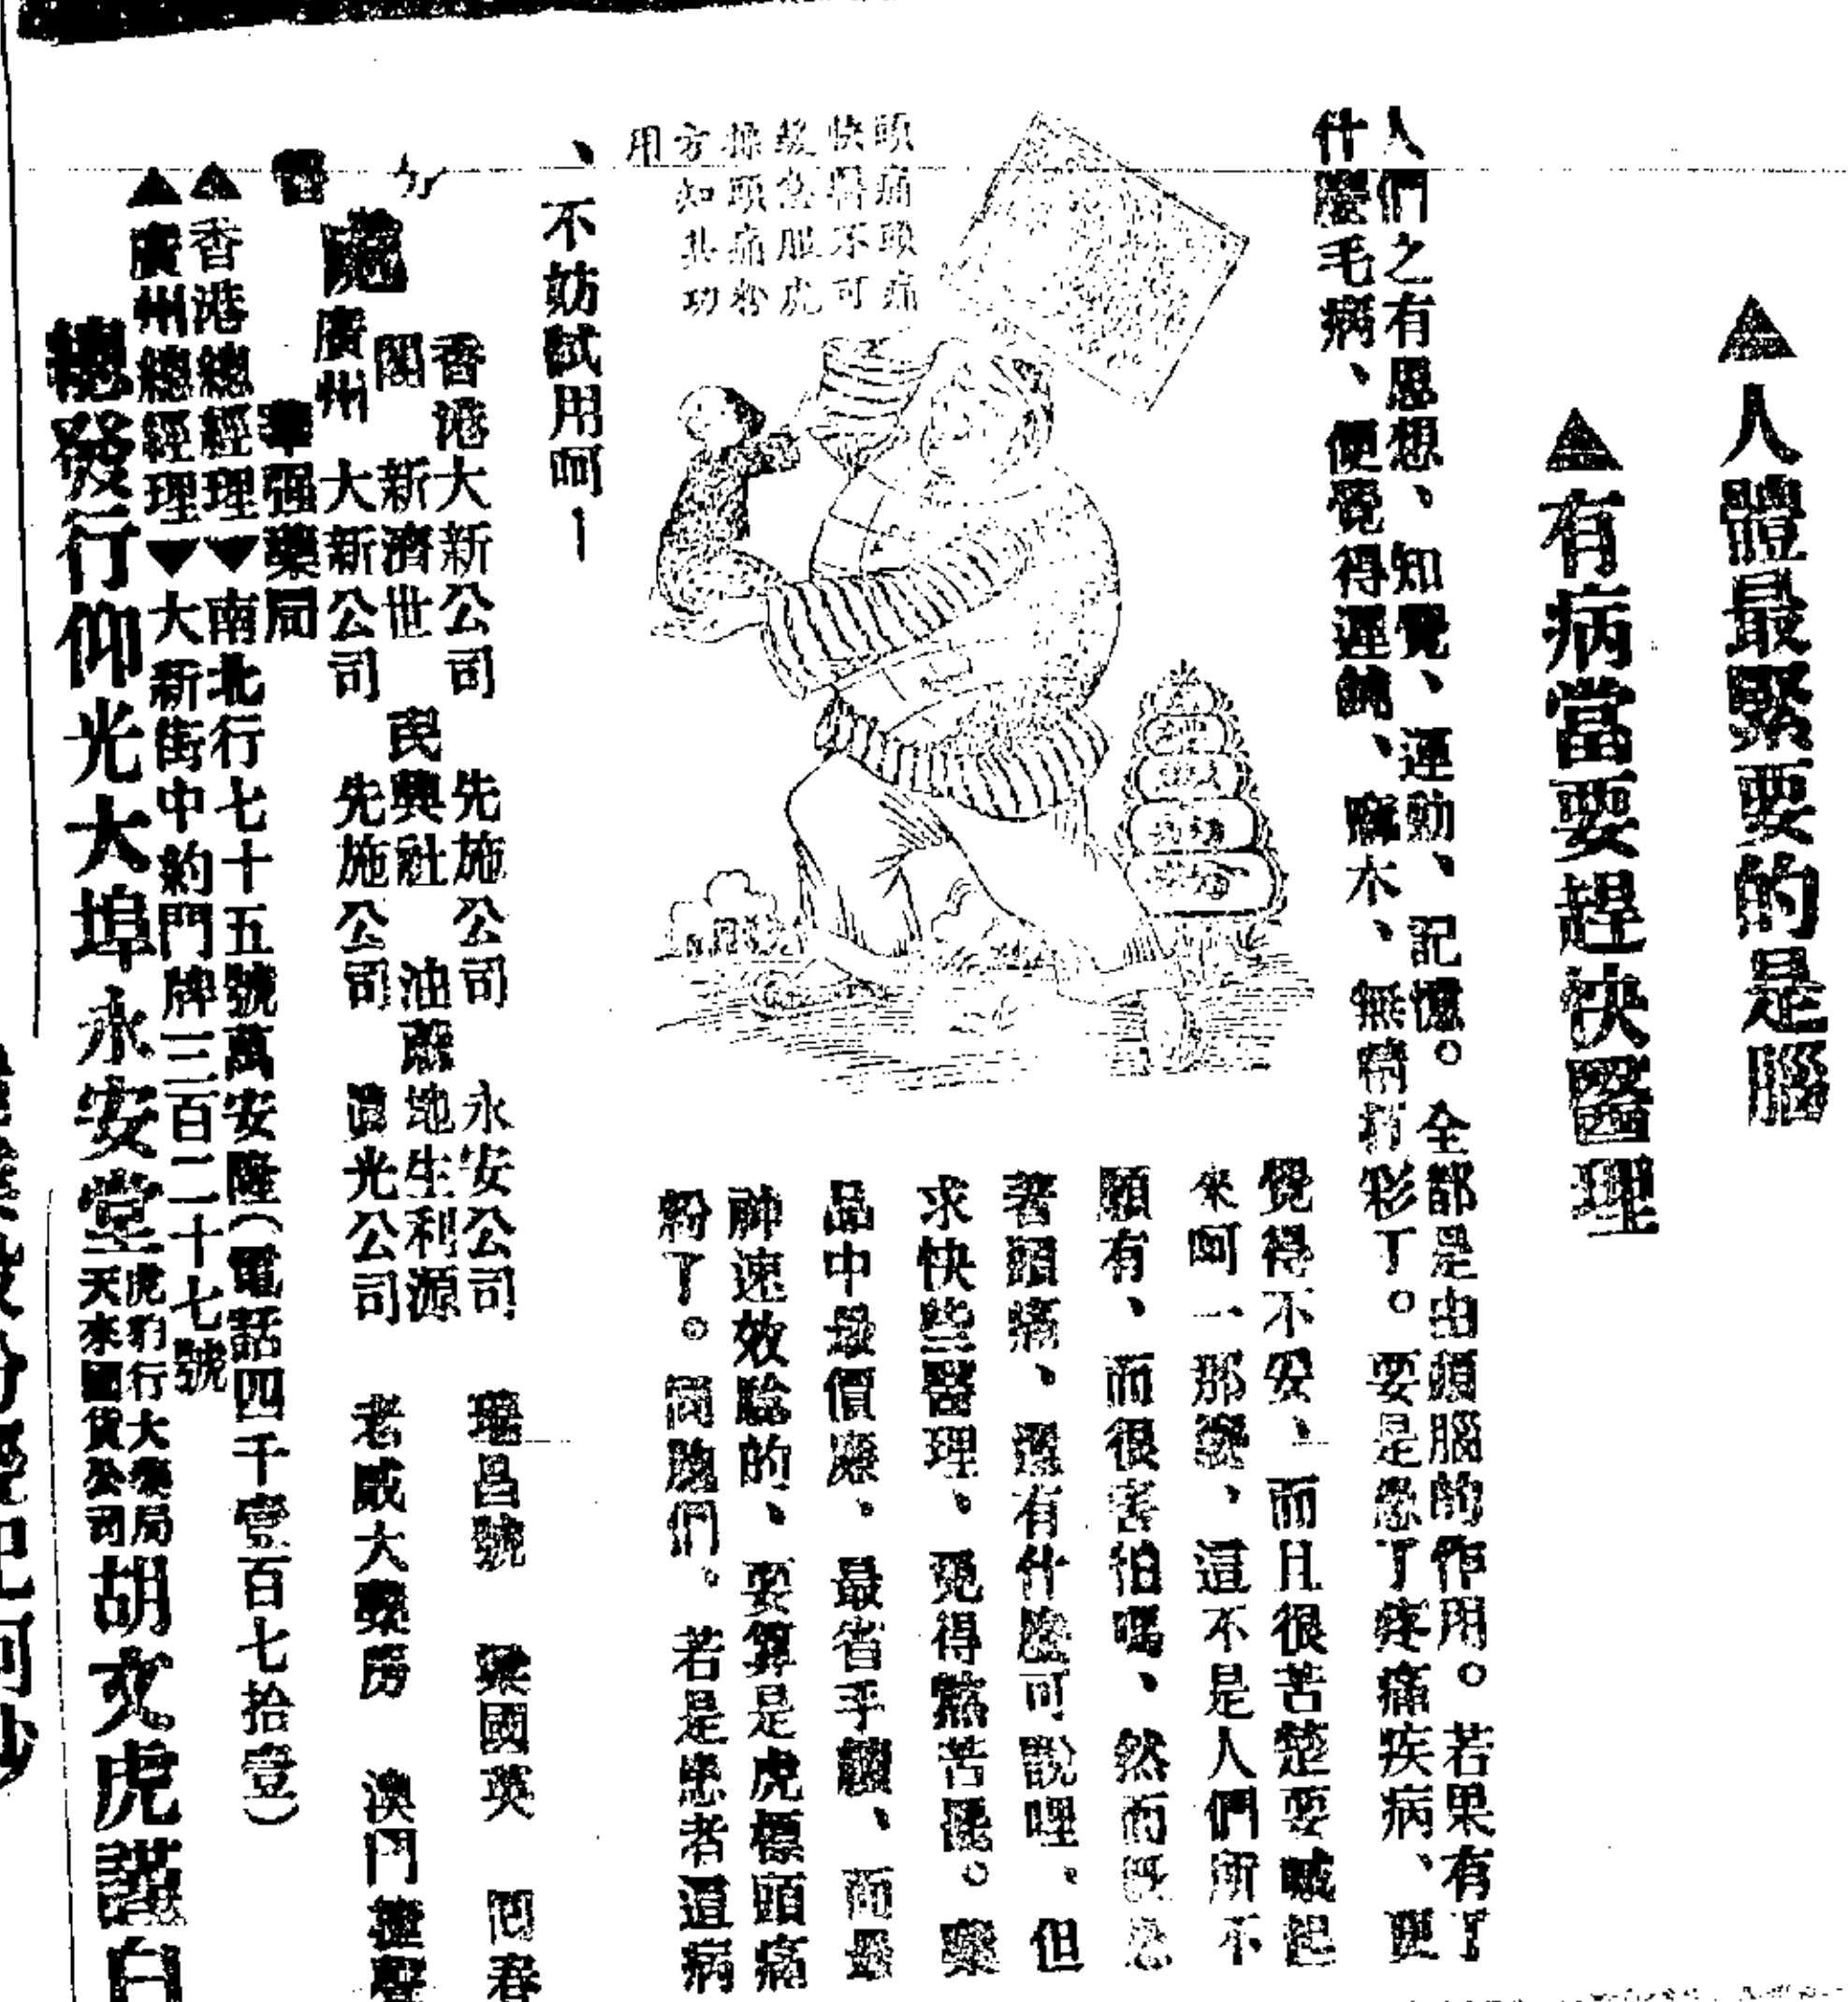 ▲人體最緊要的是腦
▲有病當要趕快醫理
人們之有思想、知覺、運動、記憶。全都是由頭腦的作用。若果有了
什麼毛病、便覺得遲鈍、麻木、無精打彩了。要是患了疼痛疾病、更
覺得不安、而且很苦楚要喊起
來呵一那麼、這不是人們所不
願有、而很害怕嗎、然而既患
著頭痛、還有什麼可說哩。但
求快些醫理、免得熬苦罷。藥
品中最價廉、最省手續、而最
神速效驗的、要算是虎標頭痛
粉了。同胞們。若是患者這病
、不妨試用呵！
頭痛頭痛
快醫不可
緩急服虎
標頭痛粉
方知其功
用
香港大新公司 先施公司 永安公司 瑞昌號 梁國英 同春
新濟世 民興社 油蔴地生利源
廣州 大新公司 先施公司 眞光公司 老威大藥房 澳門
華强藥局
▲香港總經理▼南北行七十五號萬安隆（電話四千壹百七拾壹）
▲廣州總經理▼大新街中約門牌三百二十七號
總發行仰光大埠永安堂虎豹行大藥局天來國貨公司胡文虎謹白